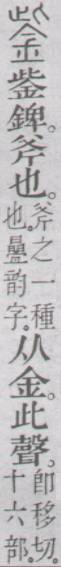 鈭鈭錍。斧也。斧之一種也。曡韵字。从金。此聲。卽移切。十六部。